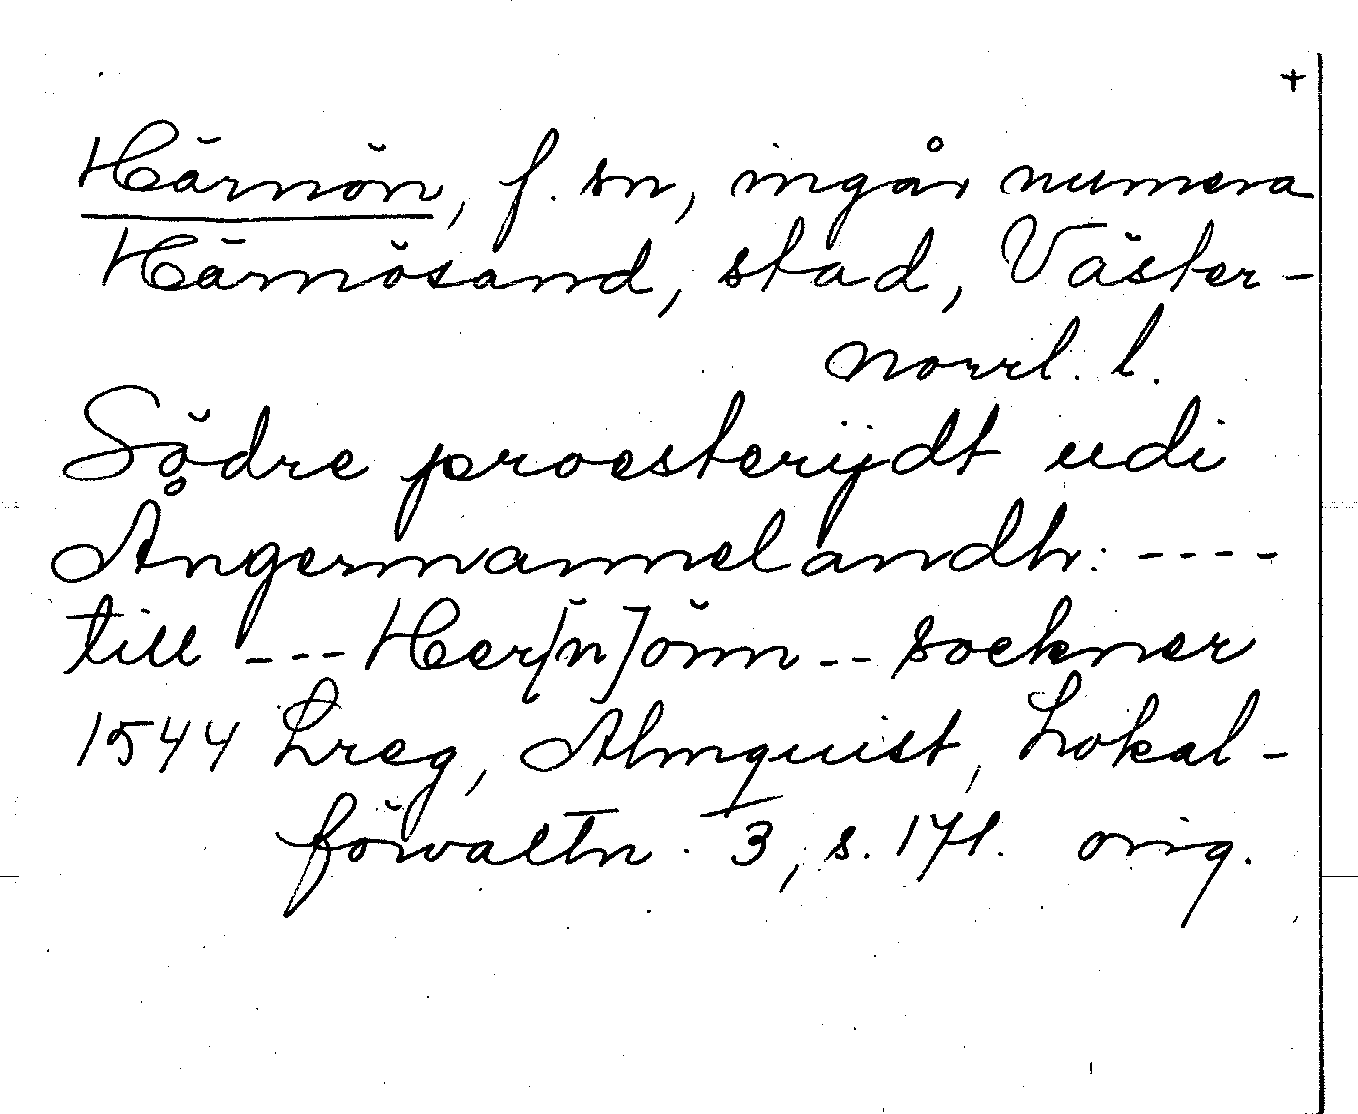 +
Härnön, f. sn, ingår numera
Härnösand, stad, Väster-
norrl. l.
Södre proesterijdt udi
Ångermannelandh: ----
till --- Her[n]önn -- sockner
1544 Lreg, Almquist, Lokal-
förvaltn. 3, s. 171. orig.